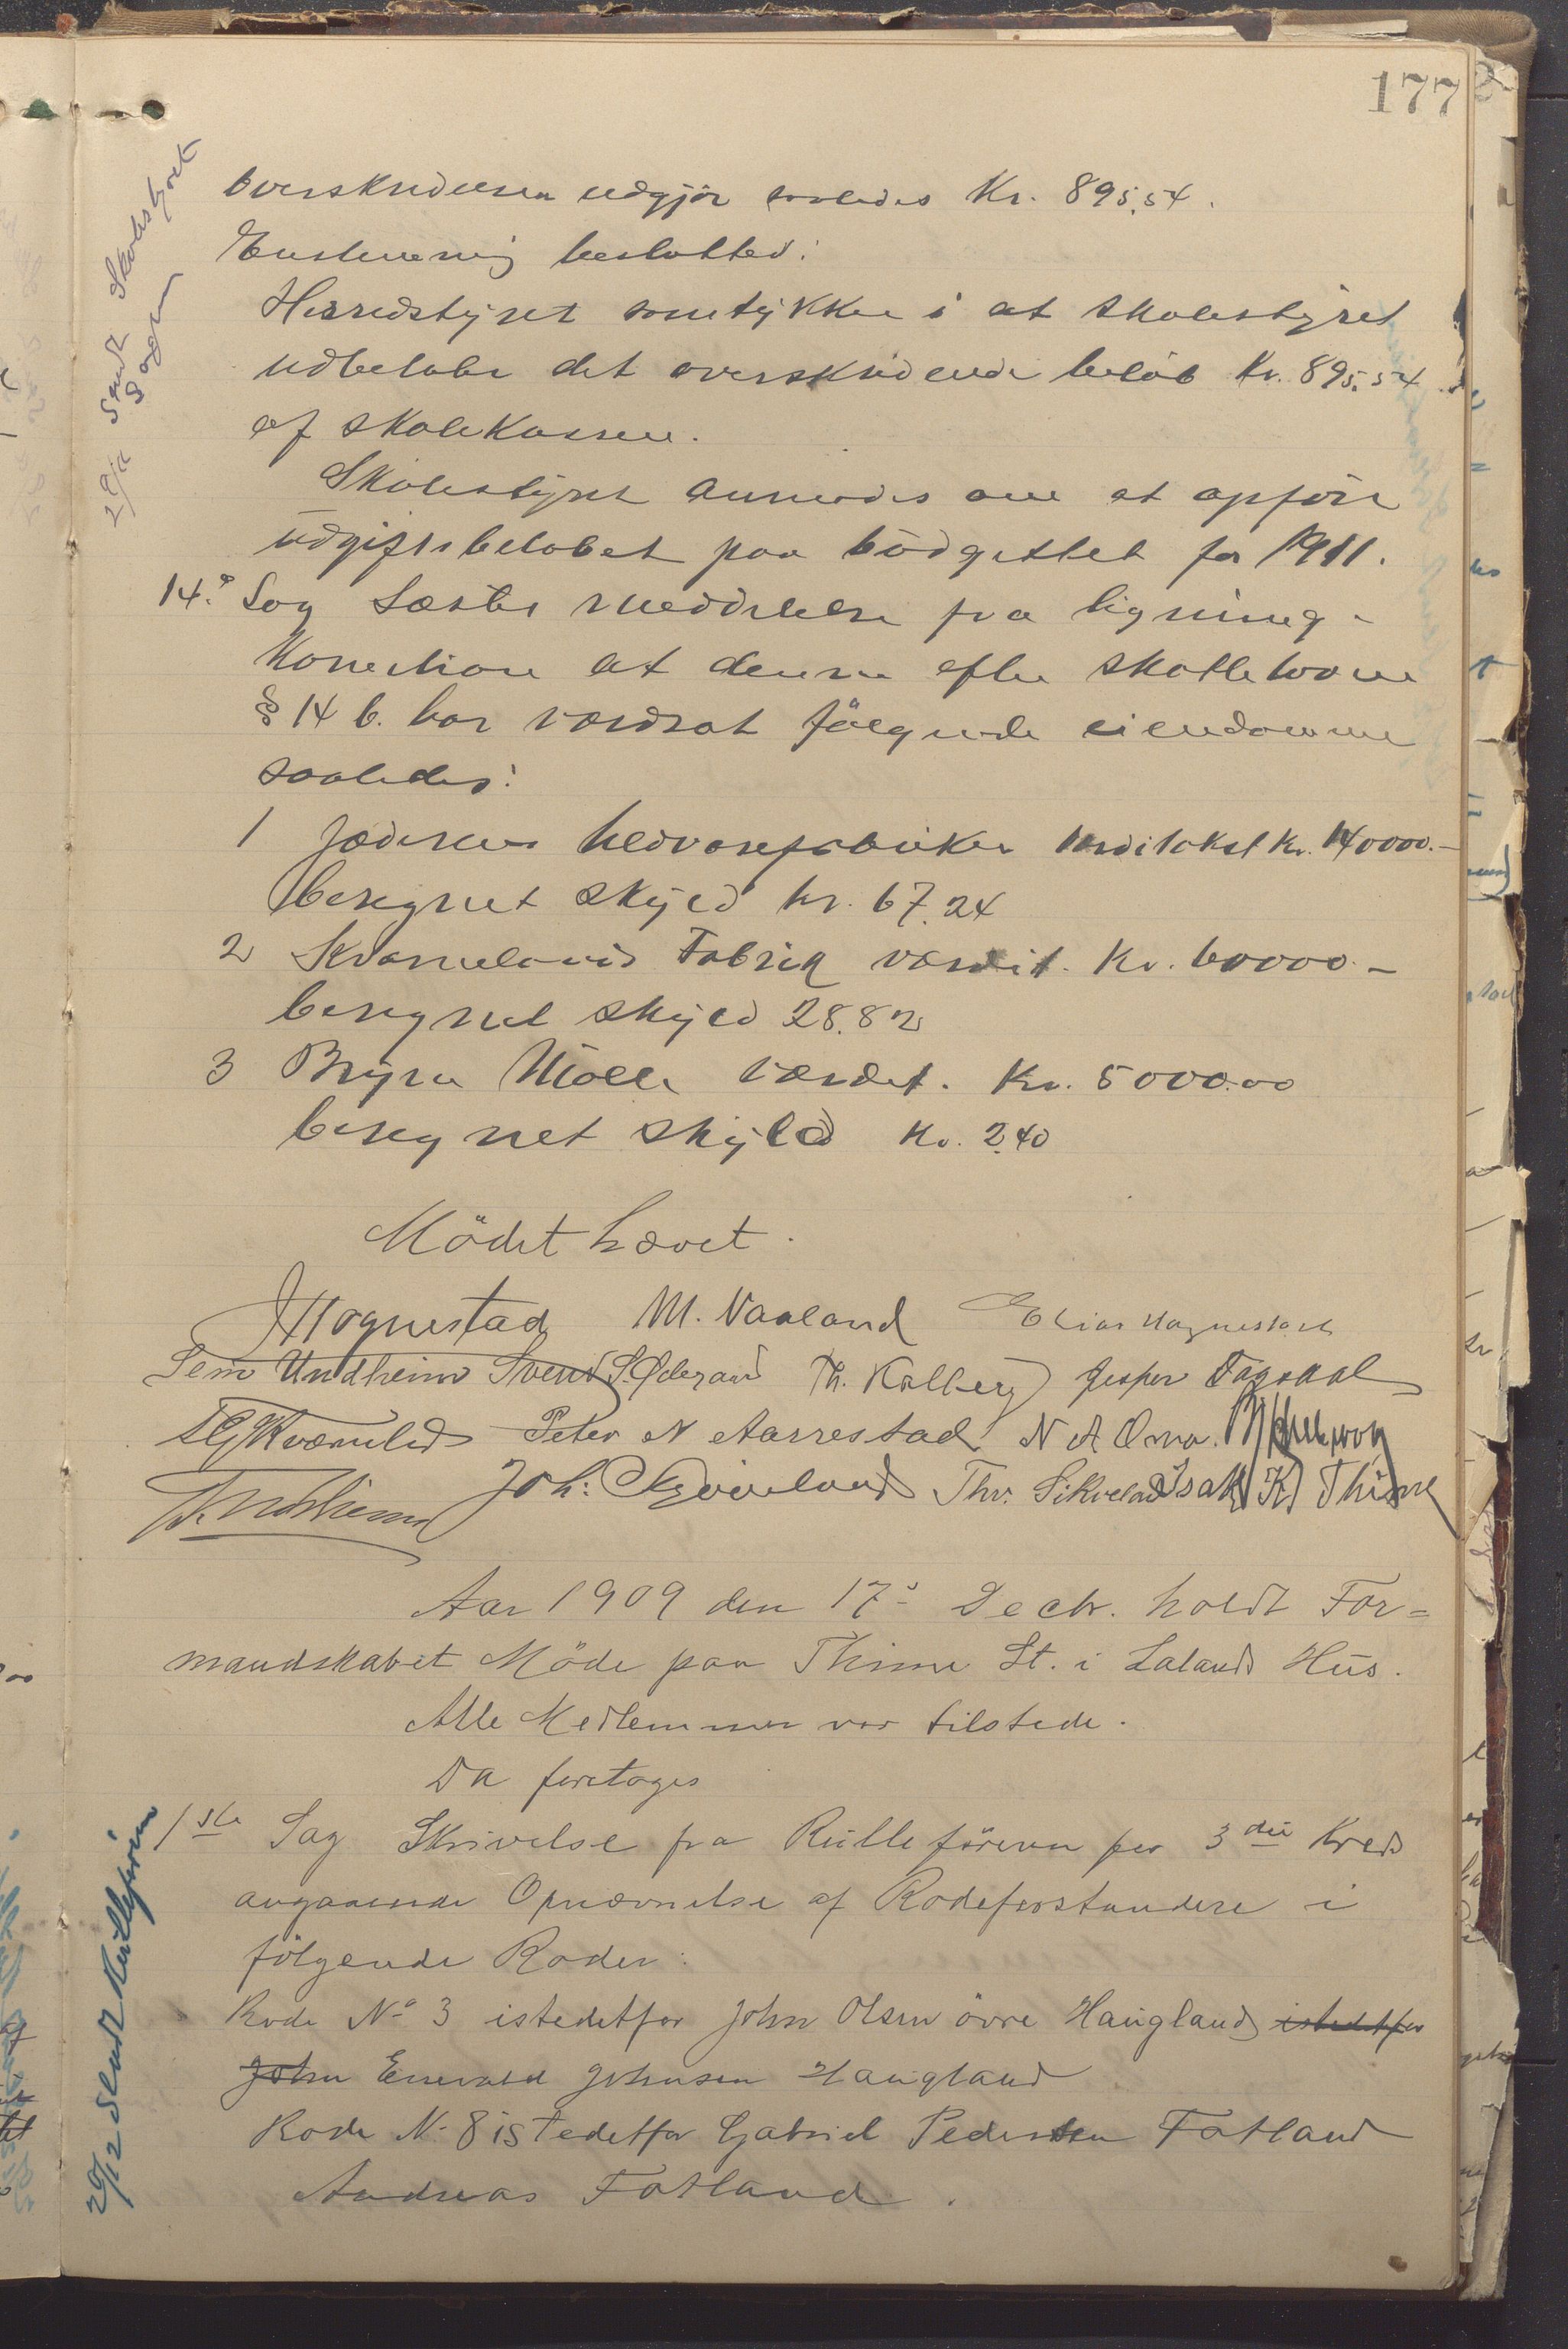 177
Overskridelsen udgjör saaledes Kr. 895,54.
Enstemmig beslutted:
Herredstyret samtykker i at skolestyret
udbetaler det overskridende belöb Kr. 895.54
af skolekassen.
Skolestyret anmodes om at opföre
udgiftsbelöbet paa büdgettet for 1911.
14. Sag Læstes meddelelse fra lignings-
komission at denne efter skatteloven
§ 14 b. har værdsat fölgende eiendomme
saaledes:
1 Jæderens Uldvarefabriker værditakst Kr. 140000.-
beregnet skyld kr. 67.24
2 Kvernelands Fabrik værdit. Kr. 60000.-
beregnet skyld 28.82
3 Bryne Mölle værdit. Kr. 5000.00
beregnet skyld Kr. 2.40
Mödet hævet.
J Hognestad M. Vaaland Elias Hognestad
Sem Undheim Svend S. Ødemand Th. Kalberg Jesper Tægsdal
Peter N Aarrestad N A Oma.
Joh: Thv. Sikveland Isak K Thime
Aar 1909 den 17- Decbr. holdt For=
mandskabet Möde paa Thime St. i Lalands Hüs.
Alle Medlemmer var tilstede.
Da foretoges
1ste Sag Skrivelse fra Rülleföreren for 3die Kreds
angaaende Opnævnelse af Rodeforstandere i
fölgende Roder:
Rode No 3 istedetfor John Olsen övre Haügland istedetfor
John Enevald Johnsen Haügland
Rode N- 8 istedetfor Gabriel Pedersen Fotland
Andreas Fotland.
29/12 Sendt Skolestyret
20/12 Sendt Rülleföreren